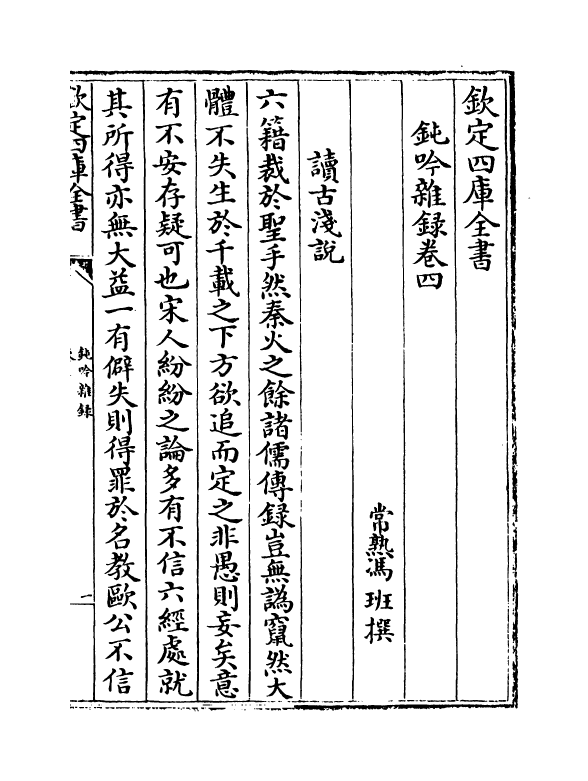 欽定四庫全書
鈍吟雜録卷四
常熟馮班撰
讀古淺說
六籍裁於聖手然秦火之餘諸儒傳録豈無譌竄然大
體不失生於千載之下方欲追而定之非愚則妄矣意
有不安存疑可也宋人紛紛之論多有不信六經處就
其所得亦無大益一有僻失則得罪於名教歐公不信
欽定四庫全書
鈍吟雜録